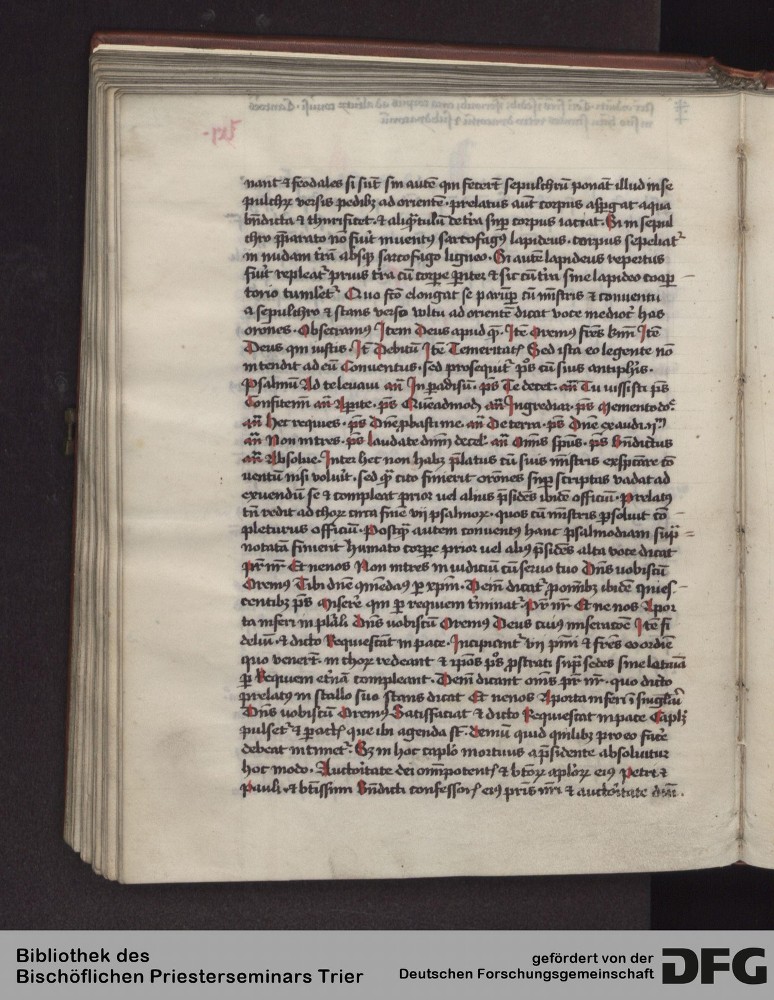 nant ⁊ feodales si sūt sin autē qui fecerūt sepulchrū ponāt illud in se
pulchꝝ versis pedibꝫ ad orientē · prelatus aūt corpus asꝑgat aqua
bn̄dicta ⁊ thurificet · ⁊ aliqͣtulū de tra suꝑ corpus iaciat · Si in sepul
chro p̄parato nō fūit inventꝰ sarcofagꝰ lapideus · corpus sepeliatͬ
in nudam tr̄a absqꝫ sarcofago ligneo · Si autē lapideus repertus
fūit repleatͬ prius tra cū corpe ꝑiter ⁊ sic cū tra sine lapideo coop
torio tumletͬ Quo fc̄o elongat se parūꝑ cū mīstris ⁊ conventu
a sepulchro ⁊ stans verso vultu ad orientē dicat voce mediocͥ has
orōnes · Obsecramꝰ Item Deus apud qͥ · Itē Oremꝰ frēs kmī Itē
Deus qui iustis · It̄ Debitū Itē Temeritatꝭ Sed ista eo legente nō
intendit ad eū Conventus · sed prosequitͬ pō̄s cū suis antiphīs ·
Psalmū Ad te levavi an̄ In ꝑadisū · pō̄s Te decet · an̄ Tu iussisti pō̄s
Confitemī an̄ Aꝑite · pō̄s Quēadmodū an̄ Ingrediar · pō̄s Memento do͞e
an̄ Hec requies · pō̄s Dn̄e ꝓbasti me · an̄ De terra · pō̄s Dn̄e exaudi · ij ·
an̄ Non intres · pō̄s laudate dnm̄ de cel̄ · an̄ Om̄is sp̄us · pō̄s Bn̄dictus
an̄ Absolve · Inter hec non habꝫ p̄latus cū suis mīstris exspectare cō
ventū nisi voluīt · sed qͣ cito finierit orōnes suꝑ scriptas vadat ad
exuendū se ⁊ compleat prior vel alius p̄sidēs ibidē officiū · Prelatꝰ
tn̄ redit ad choꝝ circa finē vij psalmoꝝ · quos cū mīstris ꝑsoluit cō
pleturus officiū · Postqͣ autem conventꝰ hanc psalmodiam suꝑͥ
notatā finierit humato corpe prior vel aliꝰ p̄sidēs alta voce dicat
Pr̄ nr̄ Et ne nos Non intres in iudiciū cū servo tuo Dn̄s vobiscū
Oremꝰ Tibi dn̄e cōmēdaꝰ ꝑ xpm̄ · Demū dicatͬ ꝓ omībꝫ ibidē quies
centibꝫ pō̄s Miserē qui ꝑ requiem t̄minatͬ Pr̄ nr̄ Et ne nos A por
ta inferi in plāli Dn̄s vobiscū Oremꝰ Deus cuiꝰ miseracōe Itē fi
deliū · ⁊ dicto Requiescāt in pace · Incipiantͬ vij pm̄i ⁊ frēs eo ordīe
quo venerūt · in choꝝ redeant ⁊ ip̄os pō̄s ꝓstrati suꝑ sedes sine latania
ꝑ Requiem et̄nā compleant · Demū dicant om̄s pr̄ nr̄ · quo dicto
prelatꝰ in stallo suo stans dicat Et ne nos A porta inferi ī singlārī
Dn̄s vobiscū Oremꝰ Satisfaciat ⁊ dicto Requiescat in pace Caplꝫ
pulsetͬ ⁊ ꝑactꝭ que ibi agenda st̄ · demū quid quilibꝫ pro eo facē
debeat intimetͬ · Sꝫ in hoc caplō mortuus a p̄sidente absoluitur
hoc modo · Auctoritate dei om̄ipotentꝭ ⁊ btōꝝ aplōꝝ eiꝰ Petri ⁊
Pauli · ⁊ btīssimi Bn̄dicti confessorꝭ eiꝰ pris nr̄i ⁊ auctoritate
Bibliothek des
Bischöflichen Priesterseminars Trier
gefördert von der
Deutschen Forschungsgemeinschaft DFG